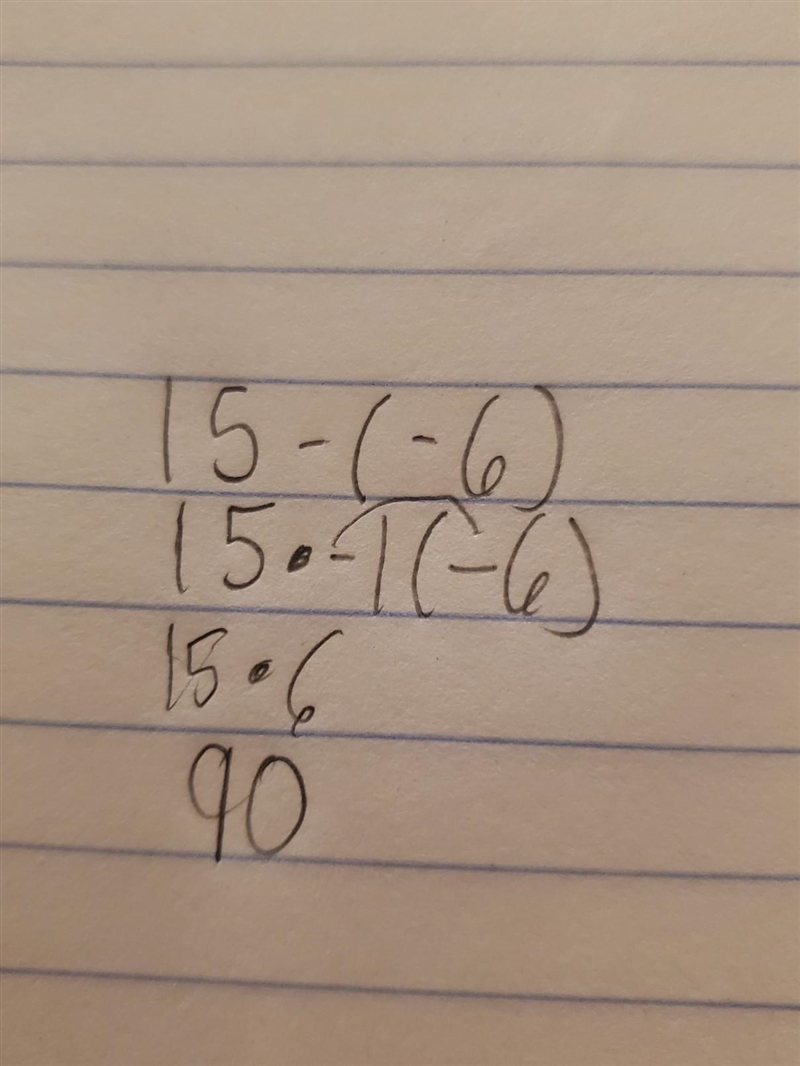 15 - (-6)
15 • -1(-6)
15 • 6
90